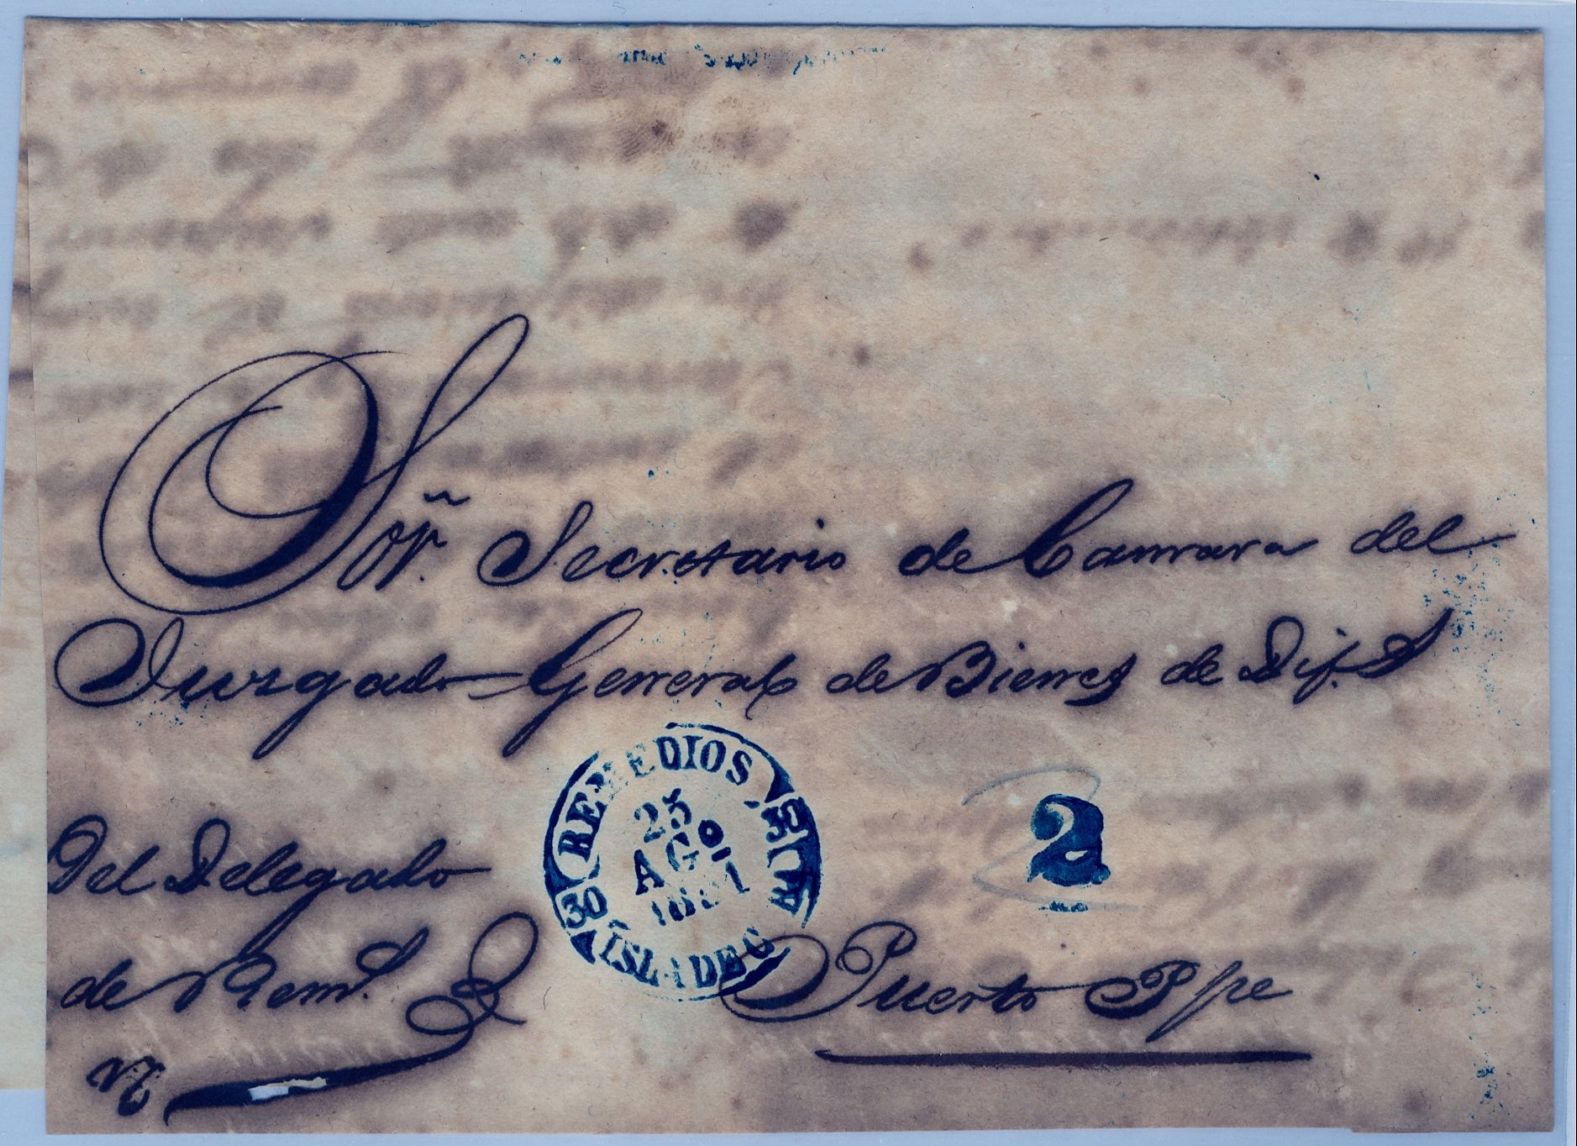 Sor. Secretario de Camara del
Juzgado General de Bienes de Dif.s
REMEDIOS
25
AGO
30
30
ISLA DE C
2
Del Delegado
de Rem.s
Puerto Ppe